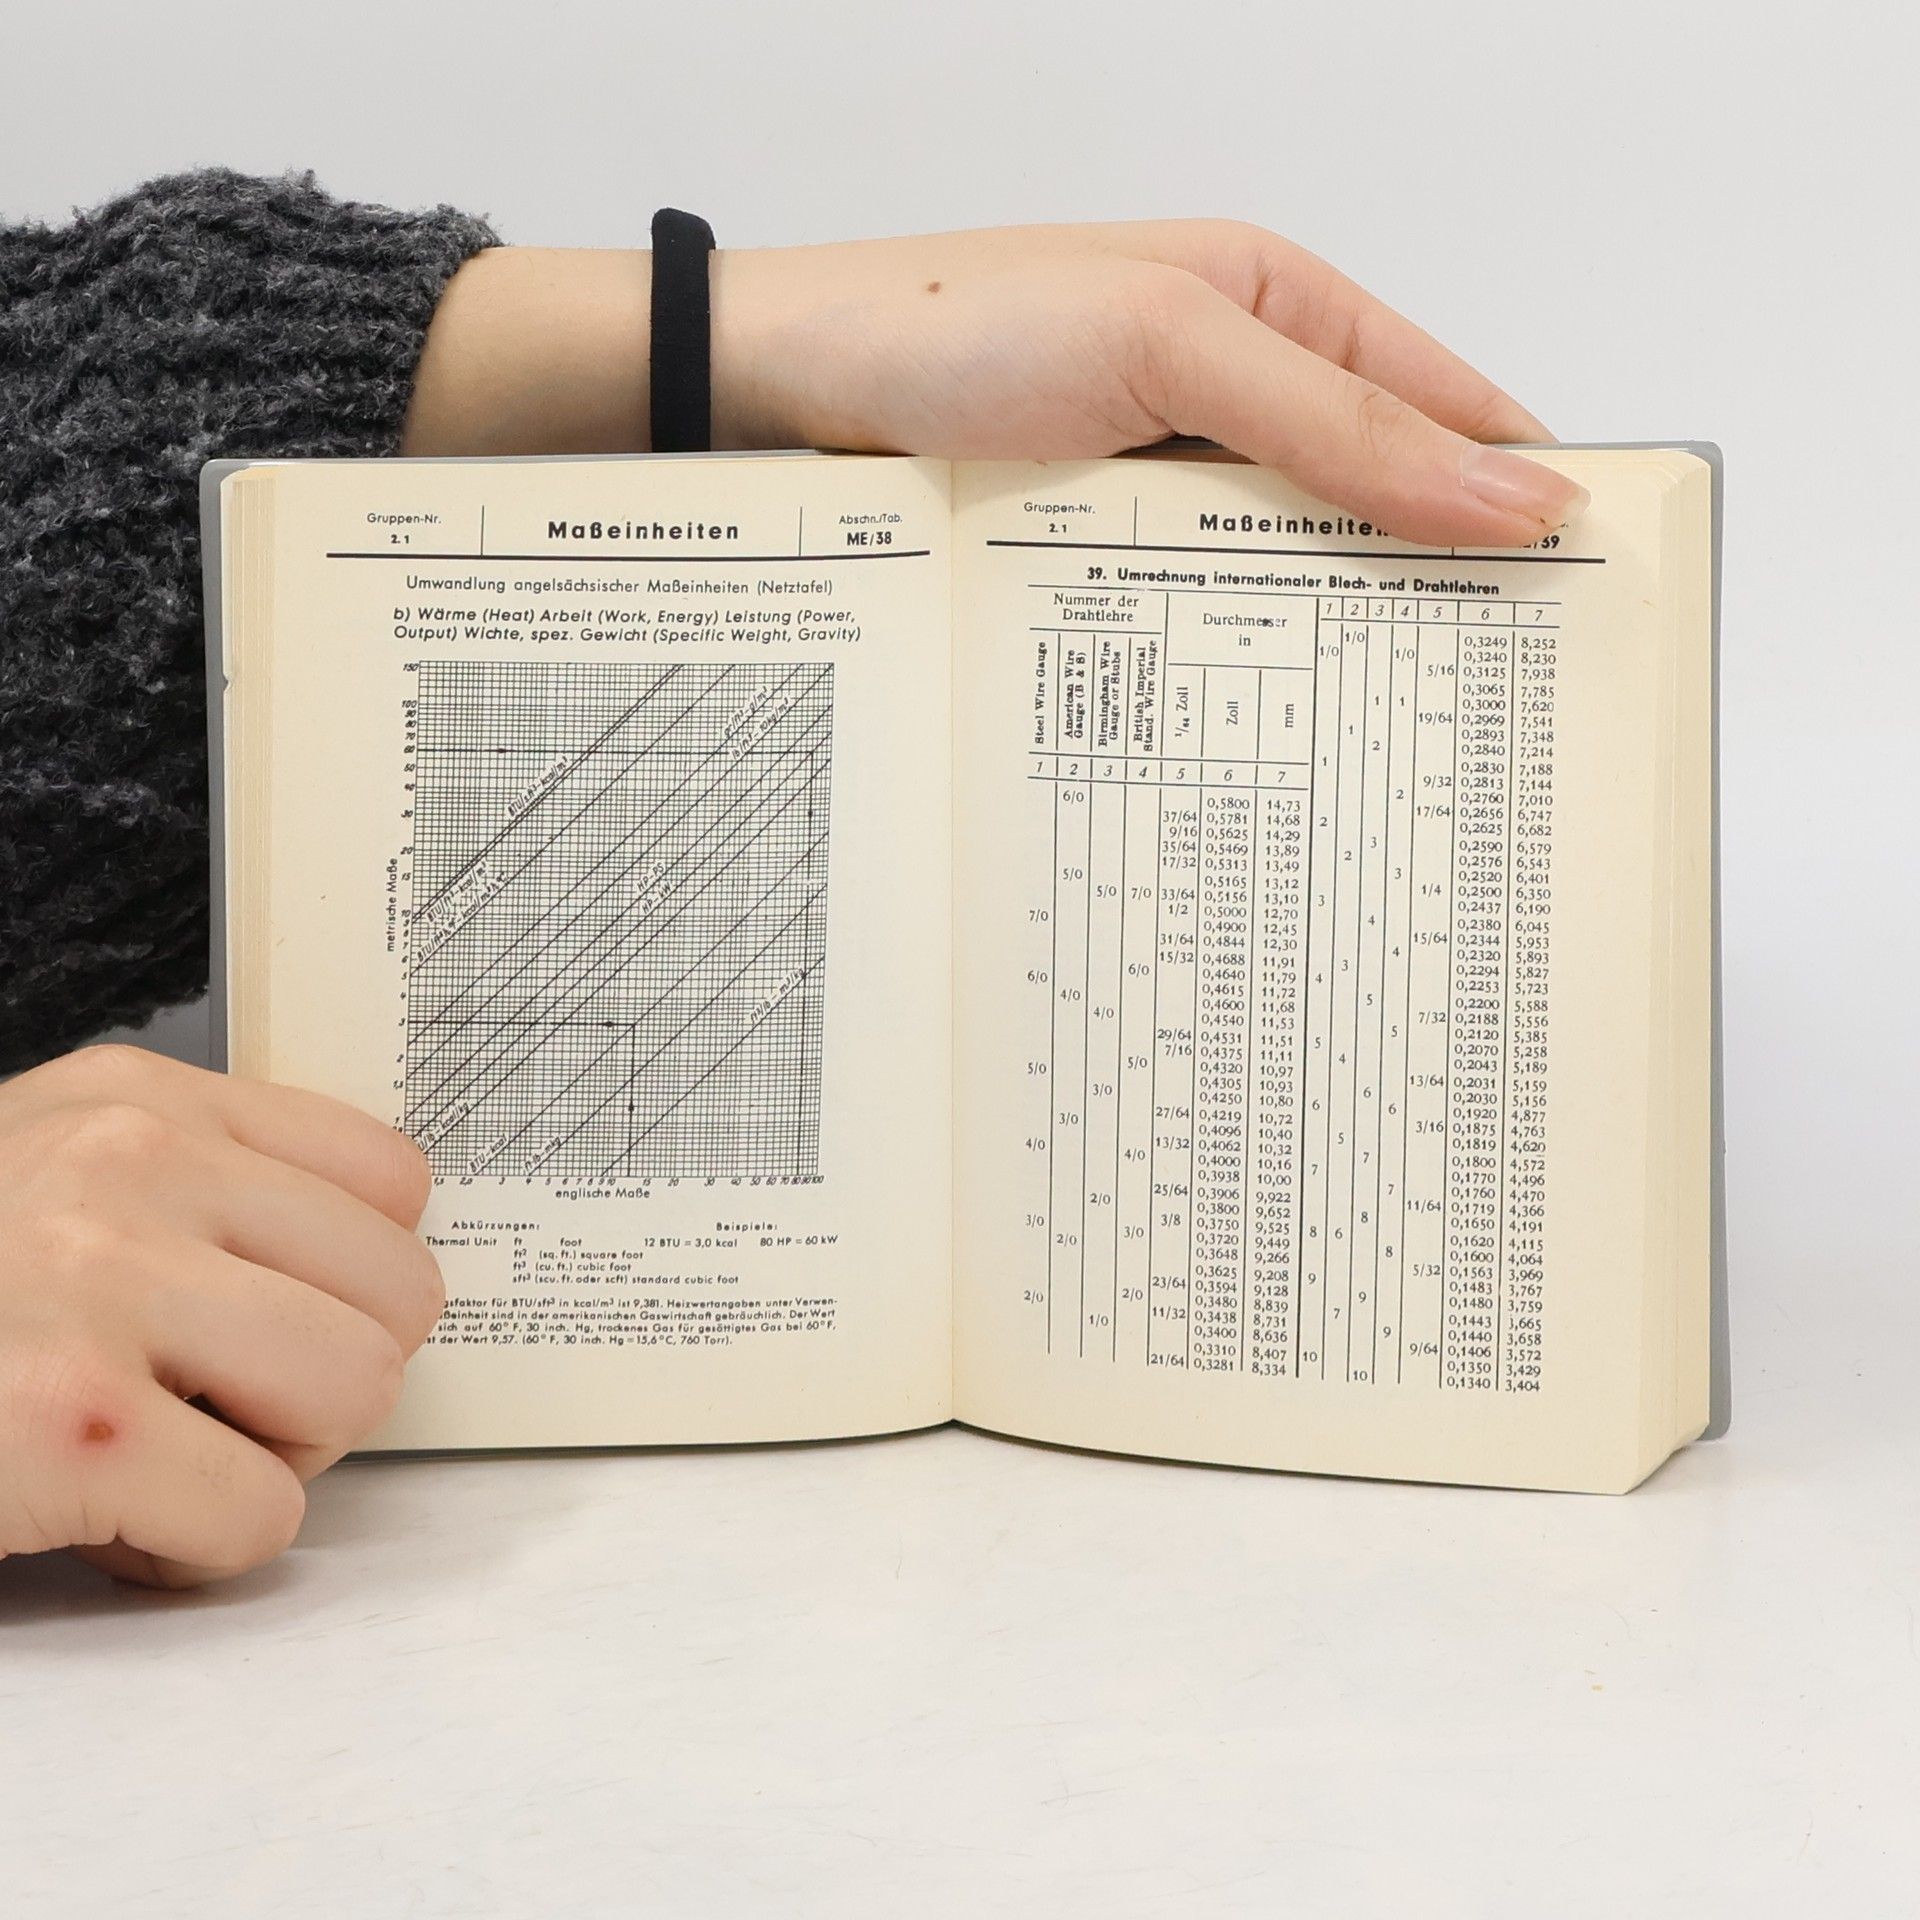 Gruppen-Nr.
2. 1
Maßeinheiten
Abschn./Tab.
ME/38
Umwandlung angelsächsischer Maßeinheiten (Netztafel)
b) Wärme (Heat) Arbeit (Work, Energy) Leistung (Power,
Output) Wichte, spez. Gewicht (Specific Weight, Gravity)
metrische Maße
150
100
90
80
70
60
50
40
30
20
15
10
5
4
3
2
1,5
1
BTU/sft³–kcal/m³
gr/ft³–g/m³
lb/ft³–10kg/m³
BTU/ft³–kcal/m³
HP–PS
HP–kW
ft³/lb–m³/kg
BTU–kcal
ft·lb–mkg
1,5 2,0 3 4 5 6 7 8 9 10 15 20 30 40 50 60 70 80 90 100
englische Maße
Abkürzungen: Beispiele:
Thermal Unit ft foot 12 BTU = 3,0 kcal 80 HP = 60 kW
ft² (sq. ft.) square foot
ft³ (cu. ft.) cubic foot
sft³ (scu. ft. oder scft) standard cubic foot
für BTU/sft³ in kcal/m³ ist 9,381. Heizwertangaben unter Verwen-
sind in der amerikanischen Gaswirtschaft gebräuchlich. Der Wert
sich auf 60° F, 30 inch. Hg, trockenes Gas für gesättigtes Gas bei 60° F,
der Wert 9,57. (60° F, 30 inch. Hg = 15,6° C, 760 Torr).
Gruppen-Nr.
2. 1
39. Umrechnung internationaler Blech- und Drahtlehren
Nummer der
Drahtlehre
Durchmesser
in
Steel Wire Gauge
American Wire
Gauge (B & S)
Birmingham Wire
Gauge or Stubs
British Imperial
Stand. Wire Gauge
1/64 Zoll
Zoll
mm
1 2 3 4 5 6 7
6/0 0,5800 14,73
37/64 0,5781 14,68
9/16 0,5625 14,29
35/64 0,5469 13,89
17/32 0,5313 13,49
5/0 0,5165 13,12
5/0 7/0 33/64 0,5156 13,10
7/0 1/2 0,5000 12,70
0,4900 12,45
31/64 0,4844 12,30
15/32 0,4688 11,91
6/0 6/0 0,4640 11,79
0,4615 11,72
4/0 0,4600 11,68
4/0 0,4540 11,53
29/64 0,4531 11,51
7/16 0,4375 11,11
5/0 5/0 0,4320 10,97
0,4305 10,93
3/0 0,4250 10,80
27/64 0,4219 10,72
3/0 0,4096 10,40
13/32 0,4062 10,32
4/0 4/0 0,4000 10,16
0,3938 10,00
25/64 0,3906 9,922
2/0 0,3800 9,652
3/8 0,3750 9,525
3/0 3/0 0,3720 9,449
2/0 0,3648 9,266
0,3625 9,208
23/64 0,3594 9,128
2/0 2/0 0,3480 8,839
11/32 0,3438 8,731
1/0 0,3400 8,636
0,3310 8,407
21/64 0,3281 8,334
1 2 3 4 5 6 7
1/0 0,3249 8,252
1/0 1/0 0,3240 8,230
5/16 0,3125 7,938
0,3065 7,785
1 1 0,3000 7,620
19/64 0,2969 7,541
1 0,2893 7,348
2 0,2840 7,214
1 0,2830 7,188
9/32 0,2813 7,144
2 0,2760 7,010
17/64 0,2656 6,747
2 0,2625 6,682
3 0,2590 6,579
2 0,2576 6,543
3 0,2520 6,401
1/4 0,2500 6,350
3 0,2437 6,190
4 0,2380 6,045
15/64 0,2344 5,953
4 0,2320 5,893
3 0,2294 5,827
4 0,2253 5,723
5 0,2200 5,588
7/32 0,2188 5,556
5 0,2120 5,385
5 0,2070 5,258
4 0,2043 5,189
13/64 0,2031 5,159
6 0,2030 5,156
6 6 0,1920 4,877
3/16 0,1875 4,763
5 0,1819 4,620
7 0,1800 4,572
7 0,1770 4,496
7 0,1760 4,470
11/64 0,1719 4,366
8 0,1650 4,191
8 6 0,1620 4,115
8 0,1600 4,064
5/32 0,1563 3,969
9 0,1483 3,767
9 0,1480 3,759
7 0,1443 3,665
9 0,1440 3,658
9/64 0,1406 3,572
10 0,1350 3,429
10 0,1340 3,404